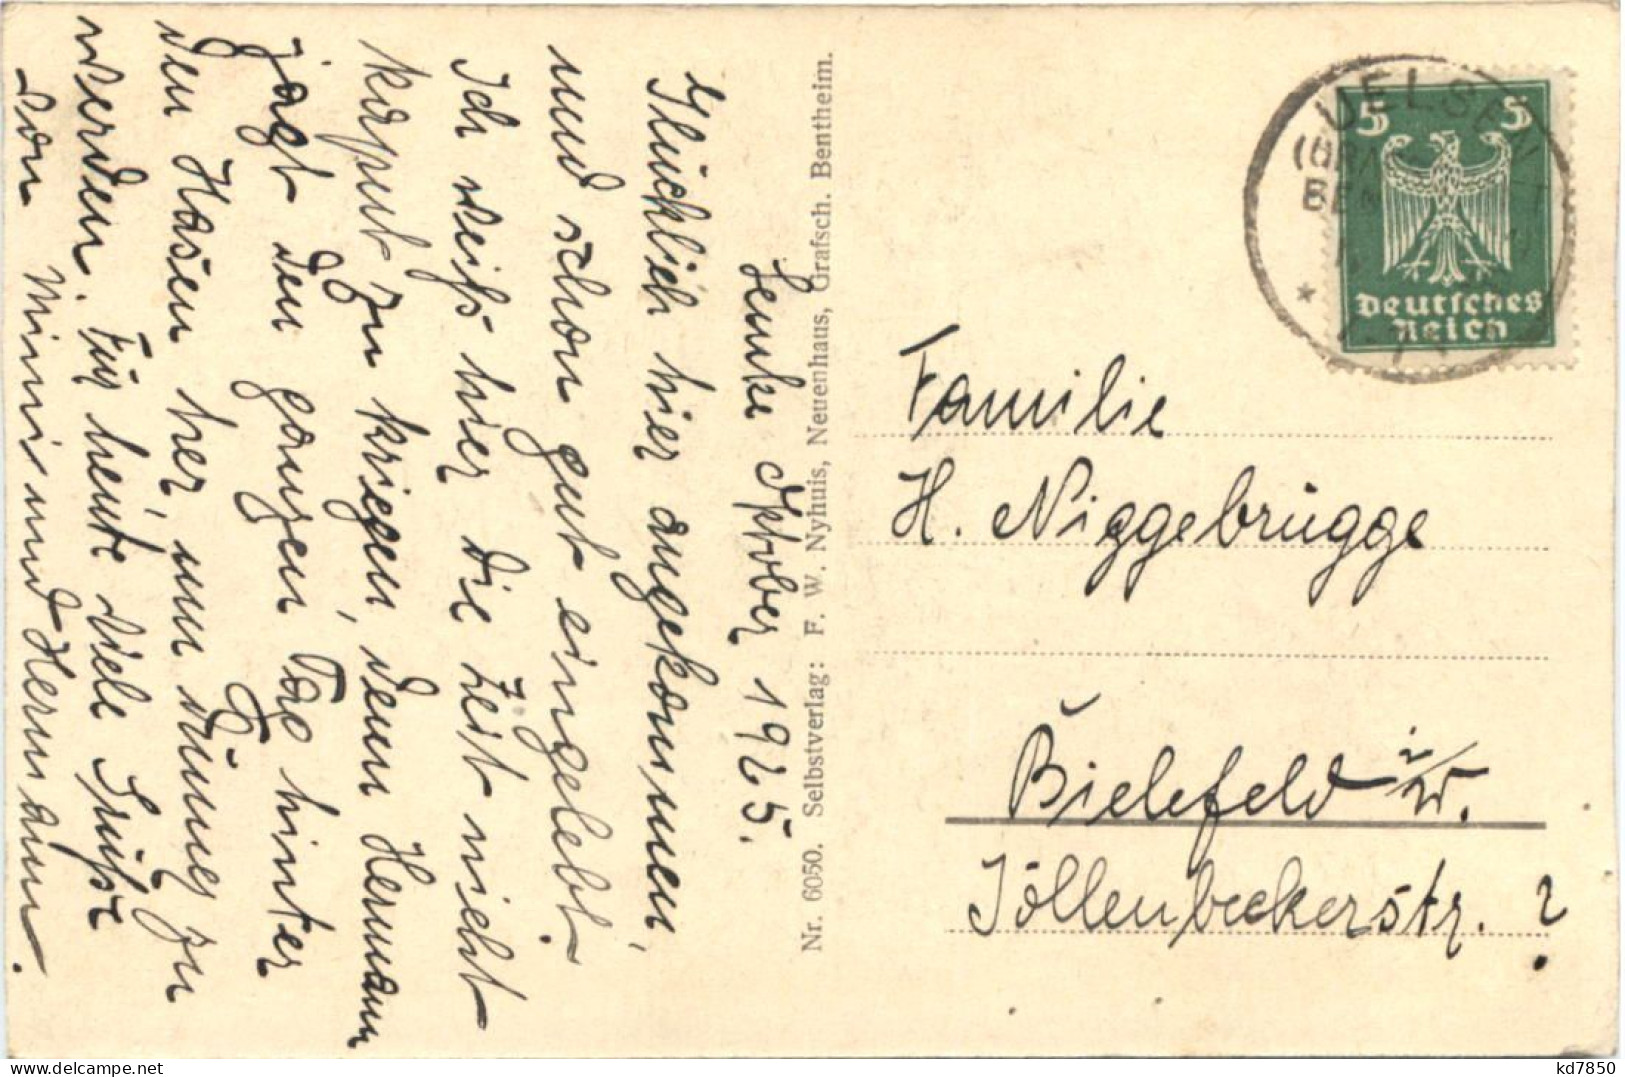 Lemke Oktober 1925.
Glücklich hier angekommen,
und schon gut eingelebt.
Ich weiß hier die Zeit nicht
kaput zu kriegen, denn Hermann
jagt den ganzen Tag hinter
den Hasen her, um dünng zu
werden. Für heute viele Grüße
von Minni und Hermann.
Nr. 6050. Selbstverlag: F. W. Nyhuis, Neuenhaus, Grafsch. Bentheim.
UELSEN
(GRA
BEN
5 5
Deutsches
Reich
Familie
H. Niggebrügge
Bielefeld i/W.
Jöllenbeckerstr. ?
kd7850